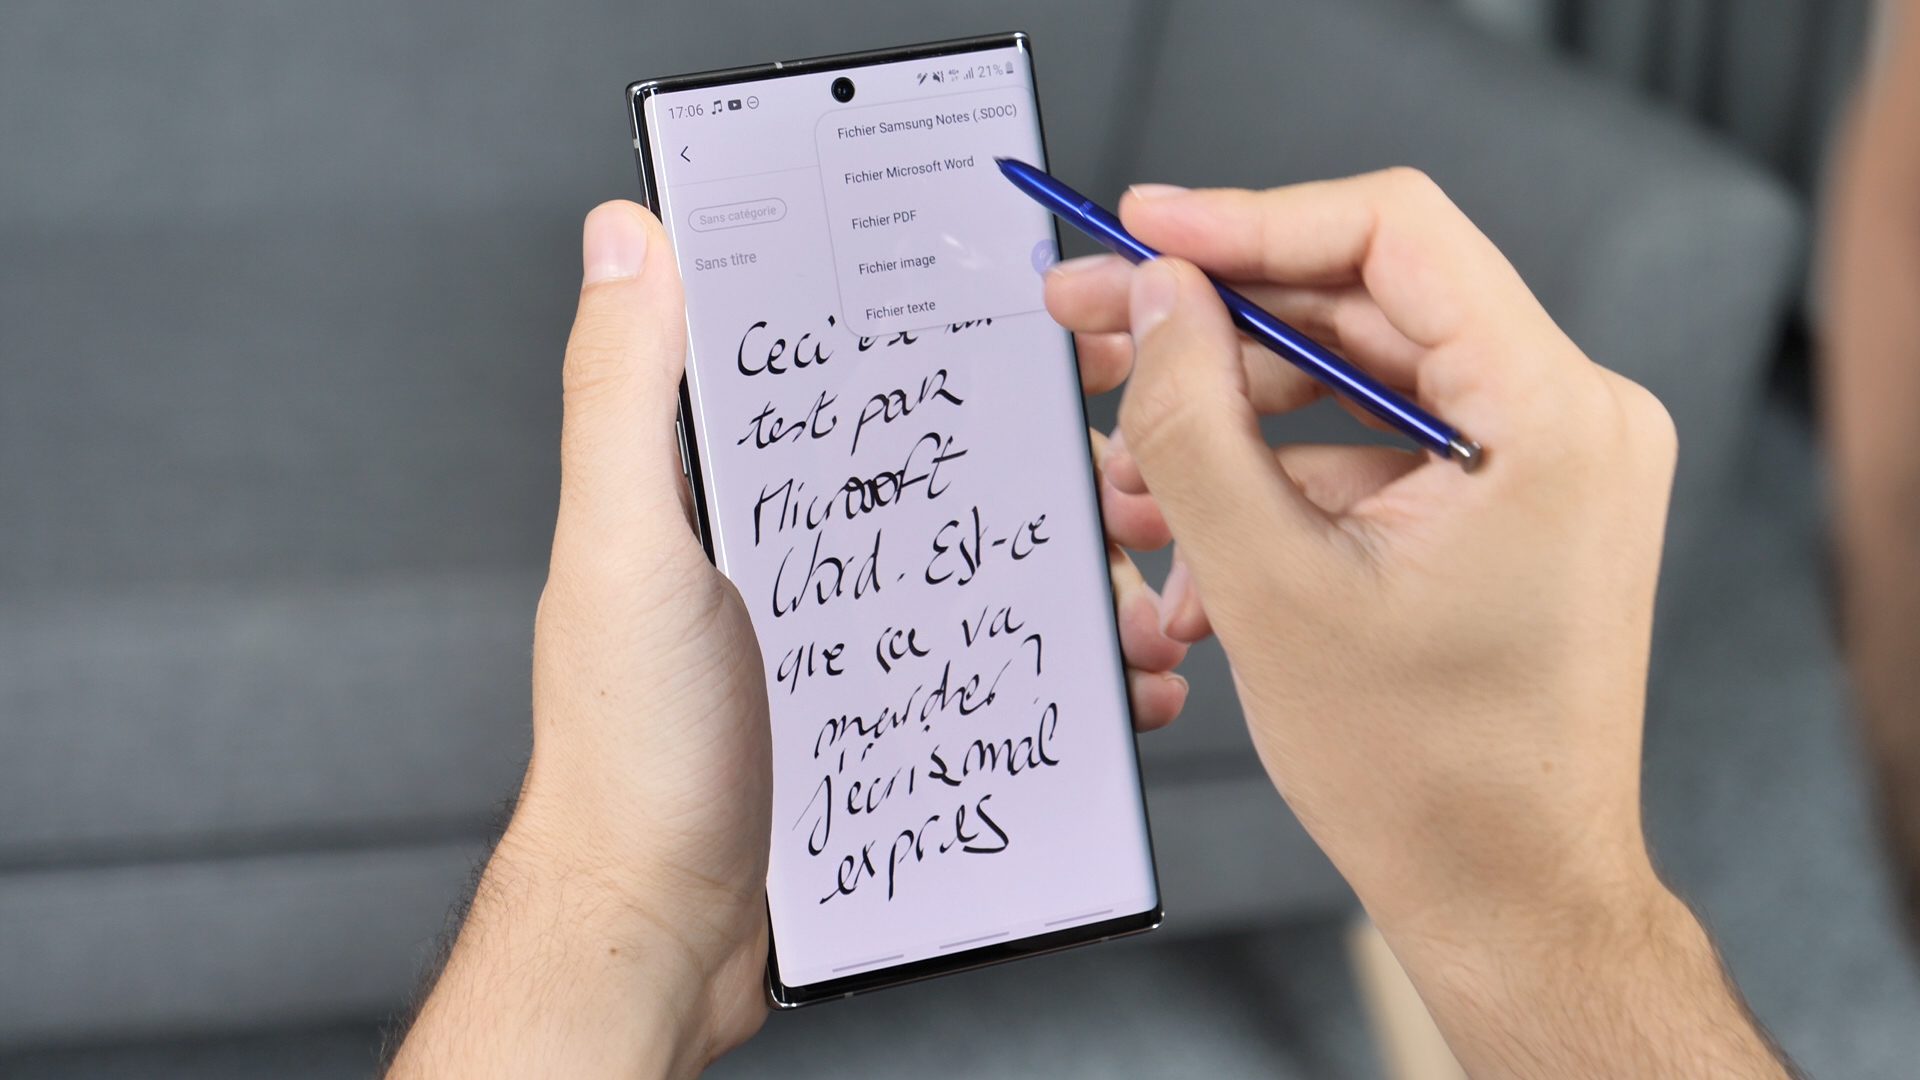 17:06 21%
Fichier Samsung Notes (.SDOC)
Fichier Microsoft Word
Sans catégorie
Fichier PDF
Sans titre
Fichier image
Fichier texte
Ceci est un
test pour
Microsoft
Word. Est-ce
que ça va
marcher?
J'écris mal
exprès